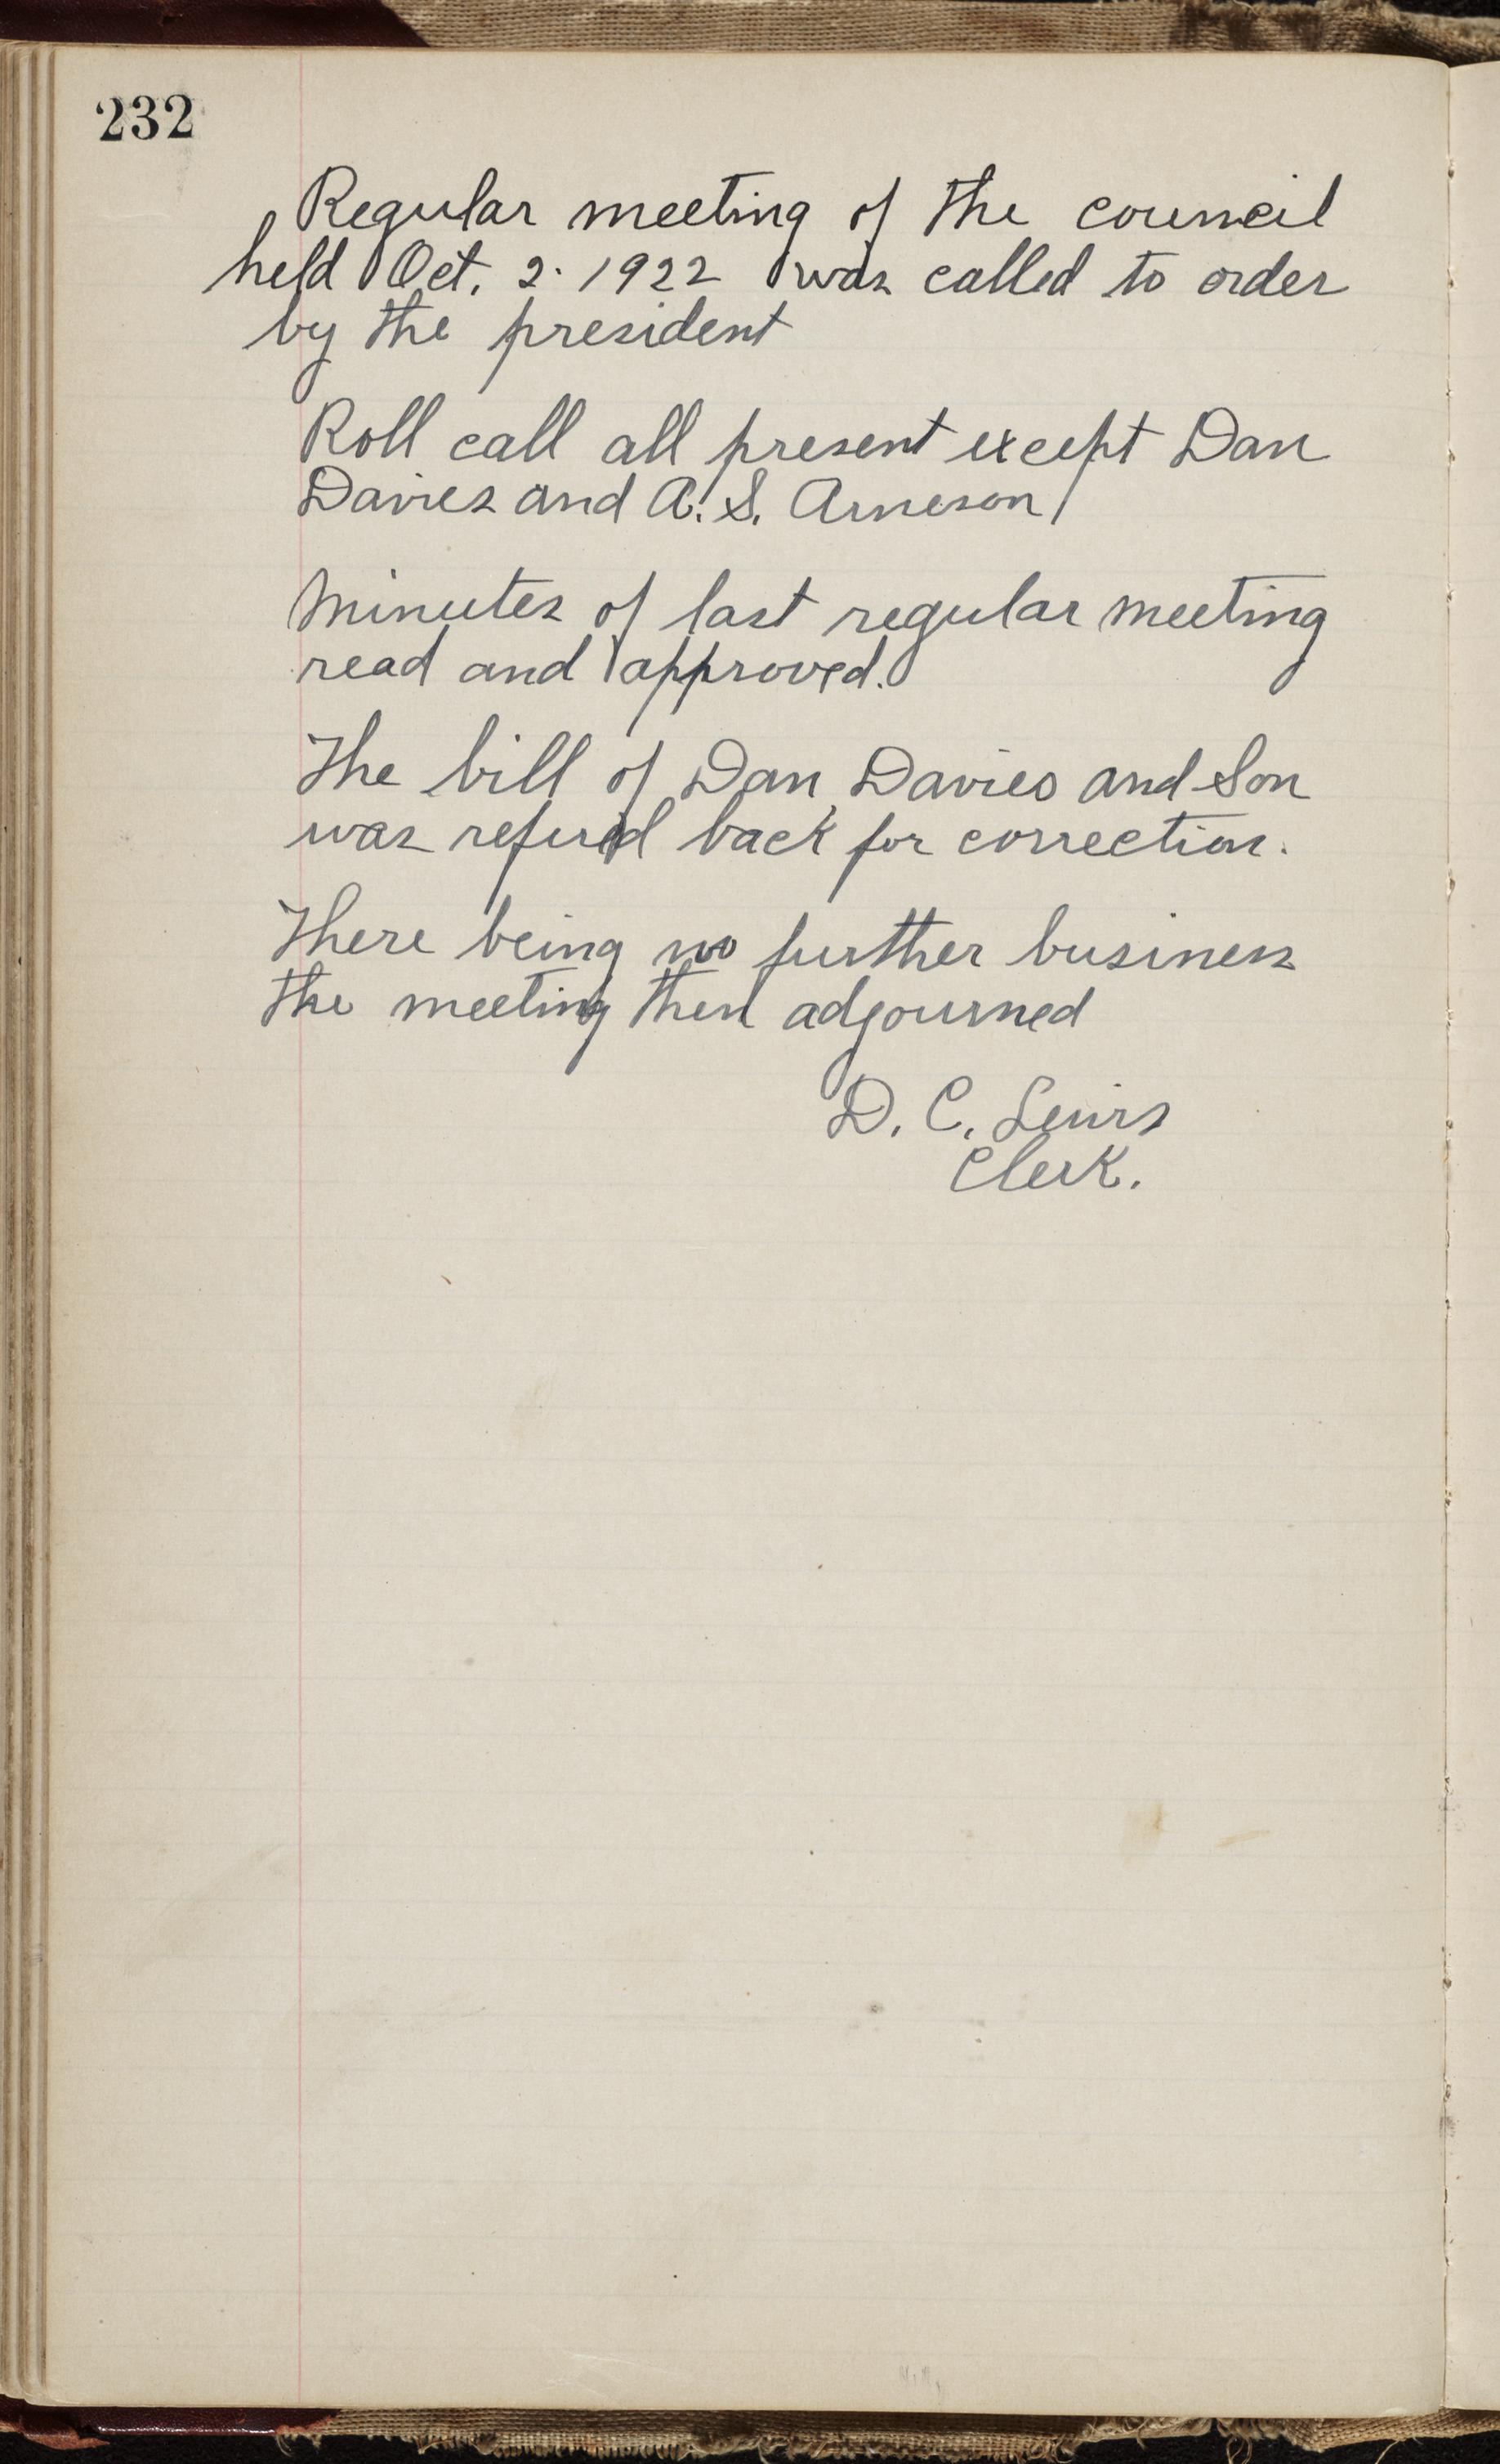 232
Regular meeting of the council
held Oct. 2. 1922 was called to order
by the president
Roll call all present except Dan
Davies and A. S. Arneson
Minutes of last regular meeting
read and approved.
The bill of Dan Davies and Son
was referd back for correction.
There being no further business
the meeting then adjourned
D. C. Lewis
Clerk.